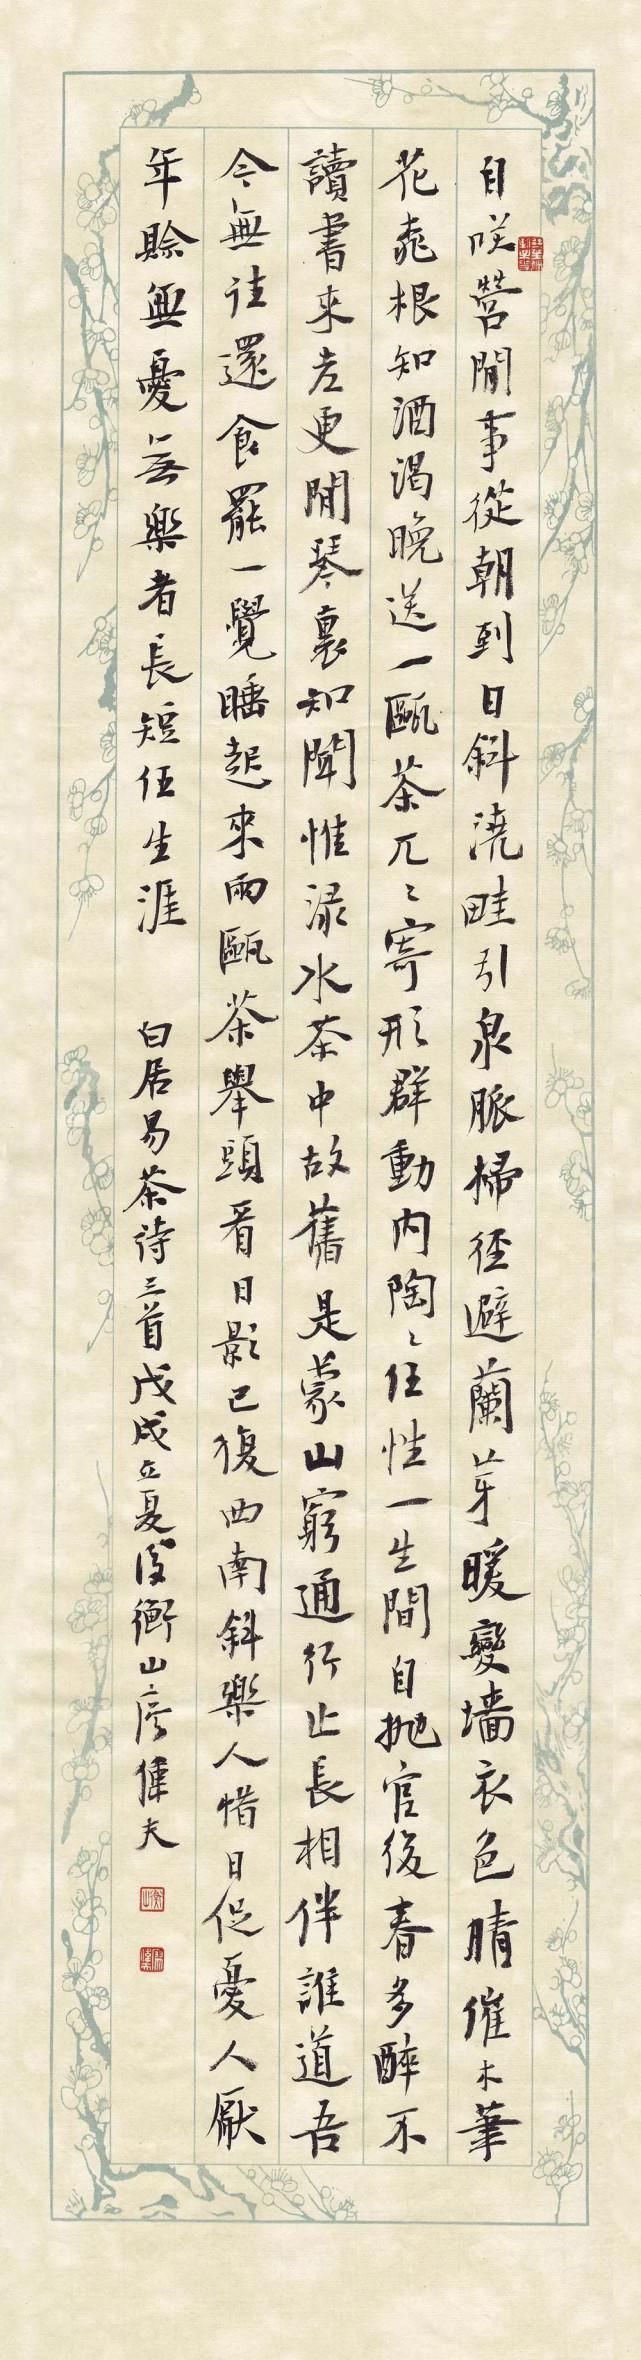 自咲營閒事從朝到日斜澆畦引泉脈掃徑避蘭芽暖變墻衣色晴催木筆
花堯根知酒渴晚送一甌茶兀〻寄形群動內陶〻任性一生間自抛官後春多醉不
讀書來老更閒琴裏知聞惟淥水茶中故舊是蒙山窮通行止長相伴誰道吾
今無往還食罷一覺睡起來兩甌茶舉頭看日影已復西南斜樂人惜日促憂人厭
年賒無憂無樂者長短任生涯 白居易茶詩三首戊戌立夏後衡山彦偉夫